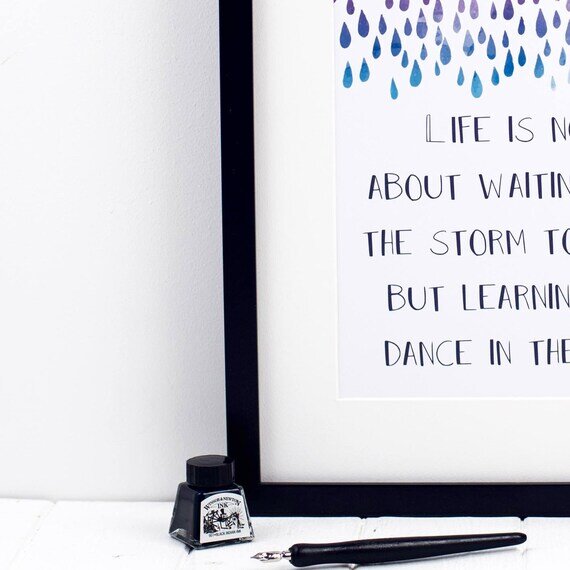 LIFE IS NO
ABOUT WAITIN
THE STORM TO
BUT LEARNIN
DANCE IN THE
WINSOR & NEWTON
INK